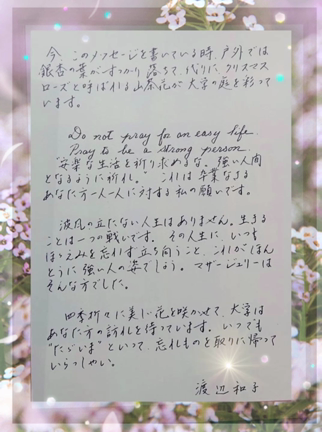 今、このメッセージを書いている時、戸外では
銀杏の葉がすっかり落ちて、代りに、クリスマス
ローズと呼ばれる山茶花が大学の庭を彩って
います。
Do not pray for an easy life.
Pray to be a strong person
"安楽な生活を祈り求めるな。強い人間
となるように祈れ。" これは卒業なさる
あなた方一人一人に対する私の願いです。
波風の立たない人生はありません。生きる
ことは一つの戦いです。その人生に、いつも
ほゝえみを忘れず立ち向うこと、これがほん
とうに強い人の姿でしょう。マザー・ジュリーは
そんな方でした。
四季折々に美しい花を咲かせて、大学は
あなた方の訪れを待っています。いつでも
"たゞいま"といって、忘れものを取りに帰って
いらっしゃい。
渡辺和子